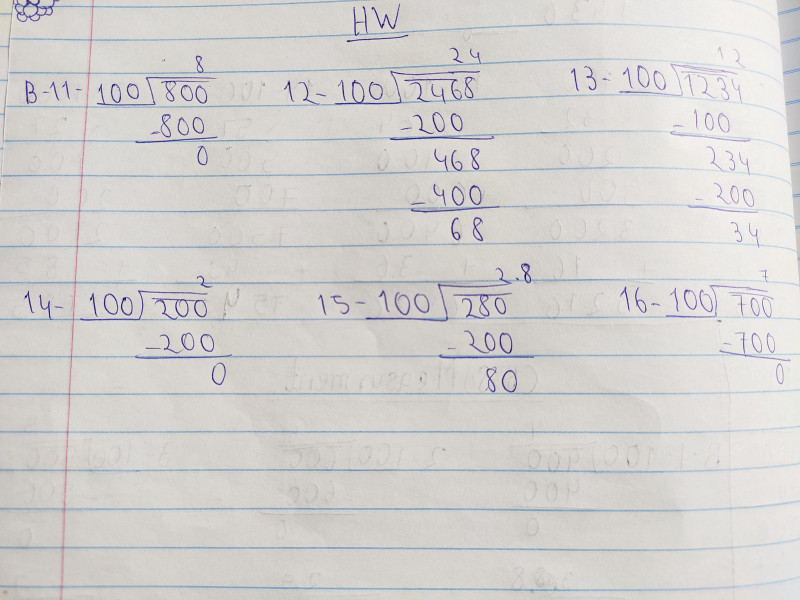 HW
8 24 12
B-11- 100)800 12-100)2468 13-100)1234
-800 -200 -100
0 468 234
-400 -200
68 34
2 2.8 7
14- 100)200 15-100)280 16-100)700
-200 -200 -700
0 80 0